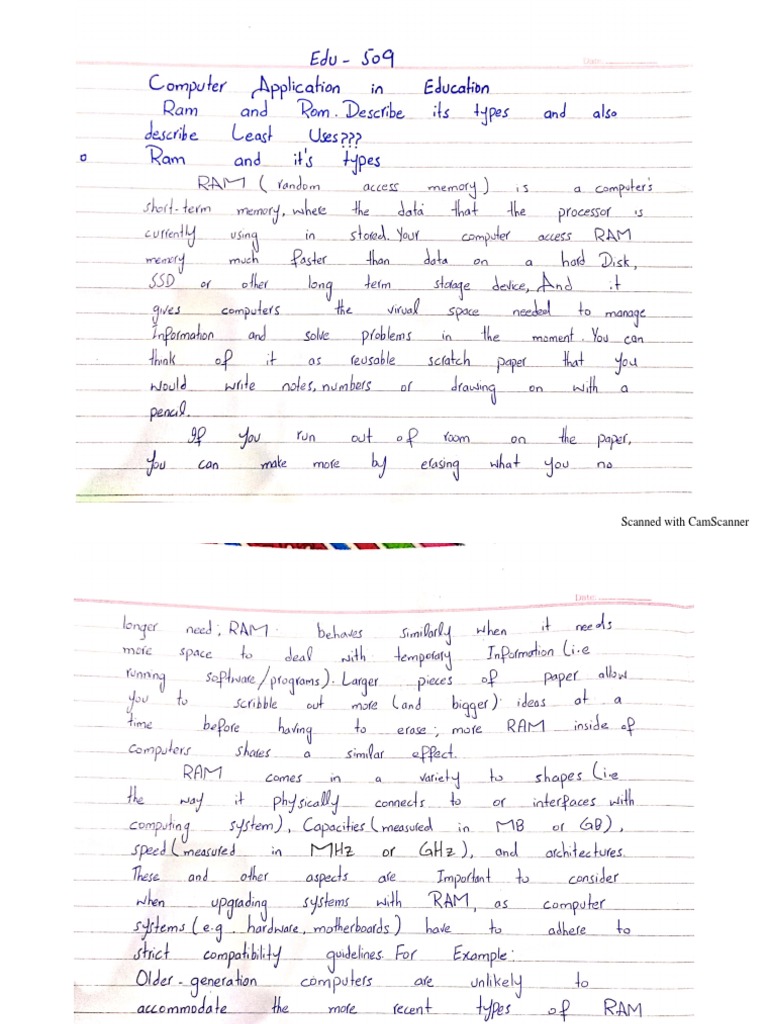 Date:
Edu - 509
Computer Application in Education
Ram and Rom. Describe its types and also
describe Least Uses???
Ram and it's types
RAM ( random access memory) is a computer's
short-term memory, where the data that the processor is
currently using in stored. Your computer access RAM
memory much faster than data on a hard Disk,
SSD or other long term storage device, And it
gives computers the virual space needed to manage
Information and solve problems in the moment. You can
think of it as reusable scratch paper that you
would write notes, numbers or drawing on with a
pencil.
If you run out of room on the paper,
you can make more by erasing what you no
Scanned with CamScanner
Date:
longer need; RAM behaves similarly when it needs
more space to deal with temporary Information (i.e
running software/programs). Larger pieces of paper allow
you to scribble out more (and bigger) ideas at a
time before having to erase; more RAM inside of
computers shares a similar effect.
RAM comes in a variety to shapes (i.e
the way it physically connects to or interfaces with
computing system), Capacities (measured in MB or GB),
speed (measured in MHz or GHz), and architectures.
These and other aspects are Important to consider
when upgrading systems with RAM, as computer
systems (e.g. hardware, motherboards) have to adhere to
strict compatibility guidelines. For Example:
Older-generation computers are unlikely to
accommodate the more recent types of RAM